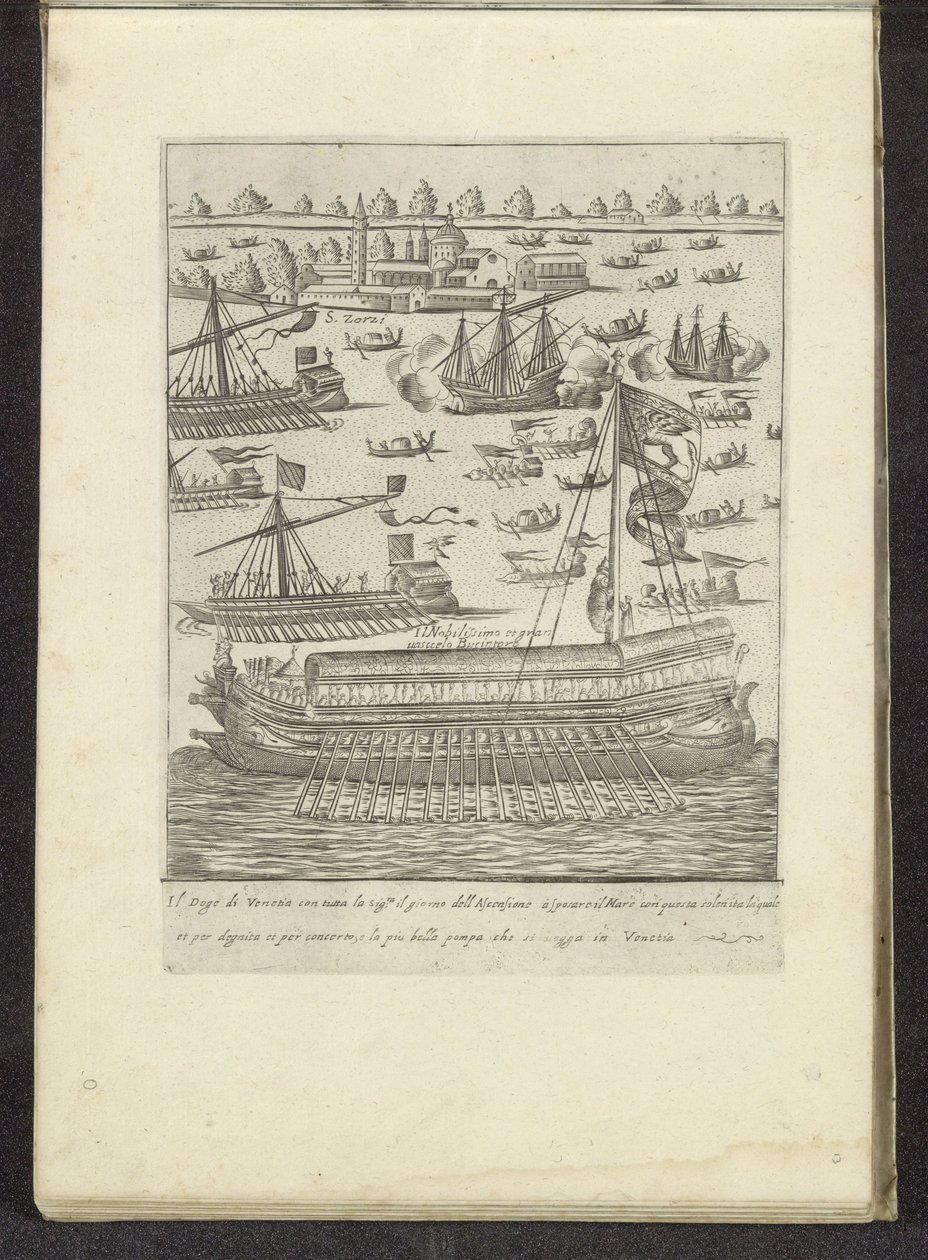 S. Zorzi
Il Nobilissimo et gran
uasccelo Bucintoro
Il Doge di Venetia con tutta la Sig.ra il giorno dell Ascensione à sposare il Mare con questa solenita la quale
et per degnita et per concerto, e la piu bella pompa che si uegga in Venetia